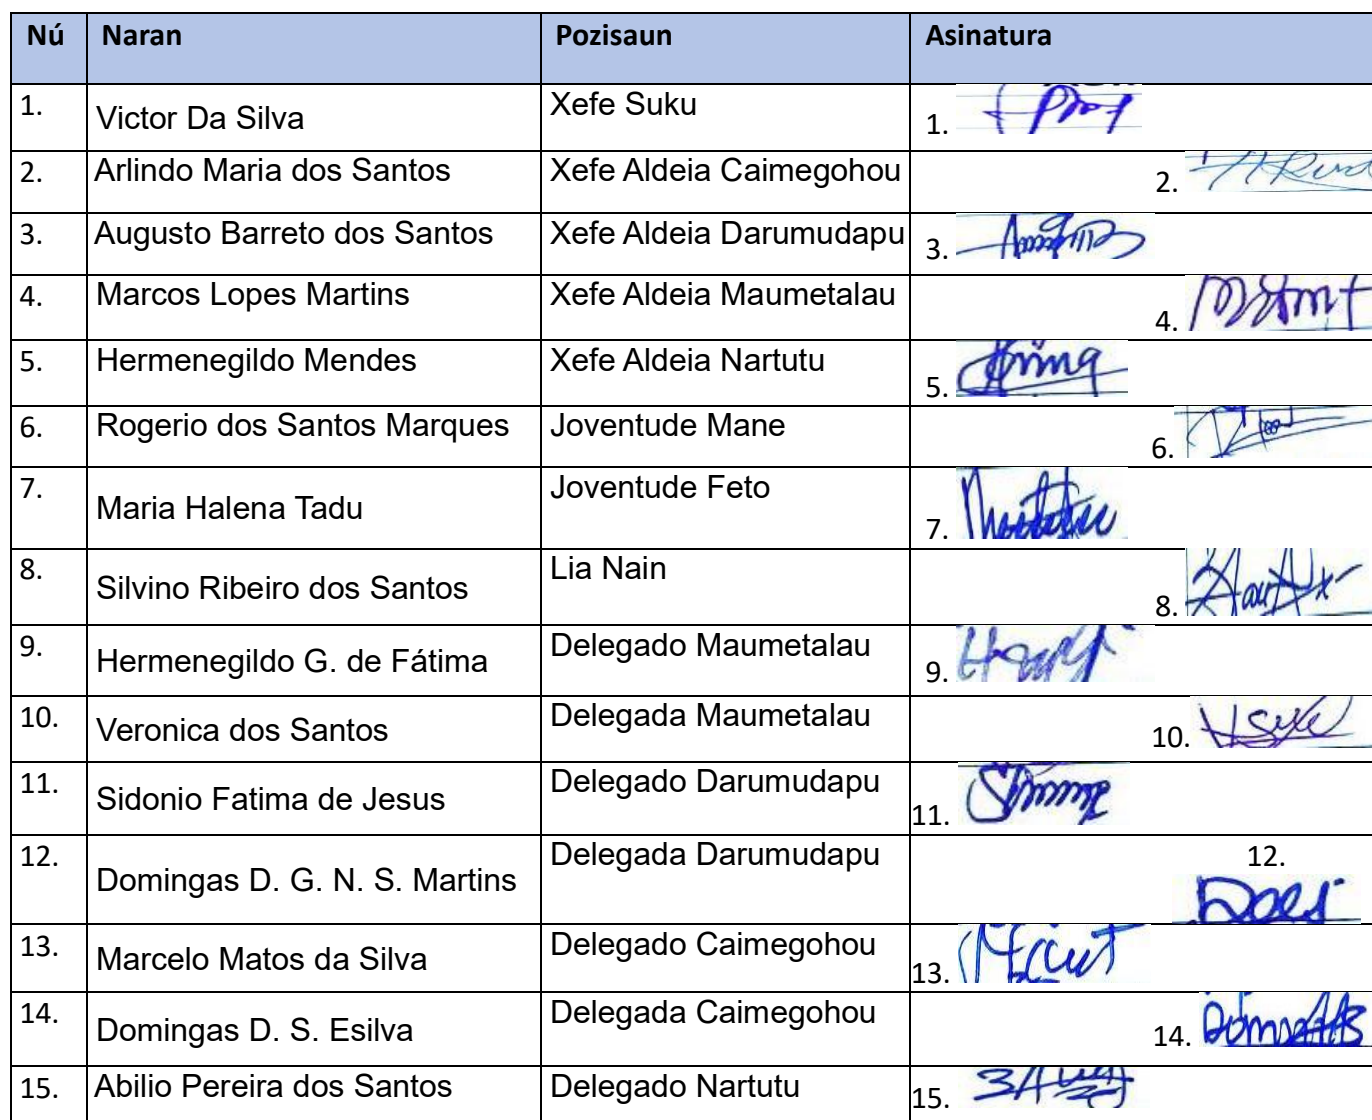 Nú Naran Pozisaun Asinatura
1. Victor Da Silva Xefe Suku 1.
2. Arlindo Maria dos Santos Xefe Aldeia Caimegohou 2.
3. Augusto Barreto dos Santos Xefe Aldeia Darumudapu 3.
4. Marcos Lopes Martins Xefe Aldeia Maumetalau 4.
5. Hermenegildo Mendes Xefe Aldeia Nartutu 5.
6. Rogerio dos Santos Marques Joventude Mane 6.
7. Maria Halena Tadu Joventude Feto 7.
8. Silvino Ribeiro dos Santos Lia Nain 8.
9. Hermenegildo G. de Fátima Delegado Maumetalau 9.
10. Veronica dos Santos Delegada Maumetalau 10.
11. Sidonio Fatima de Jesus Delegado Darumudapu 11.
12. Domingas D. G. N. S. Martins Delegada Darumudapu 12.
13. Marcelo Matos da Silva Delegado Caimegohou 13.
14. Domingas D. S. Esilva Delegada Caimegohou 14.
15. Abilio Pereira dos Santos Delegado Nartutu 15.